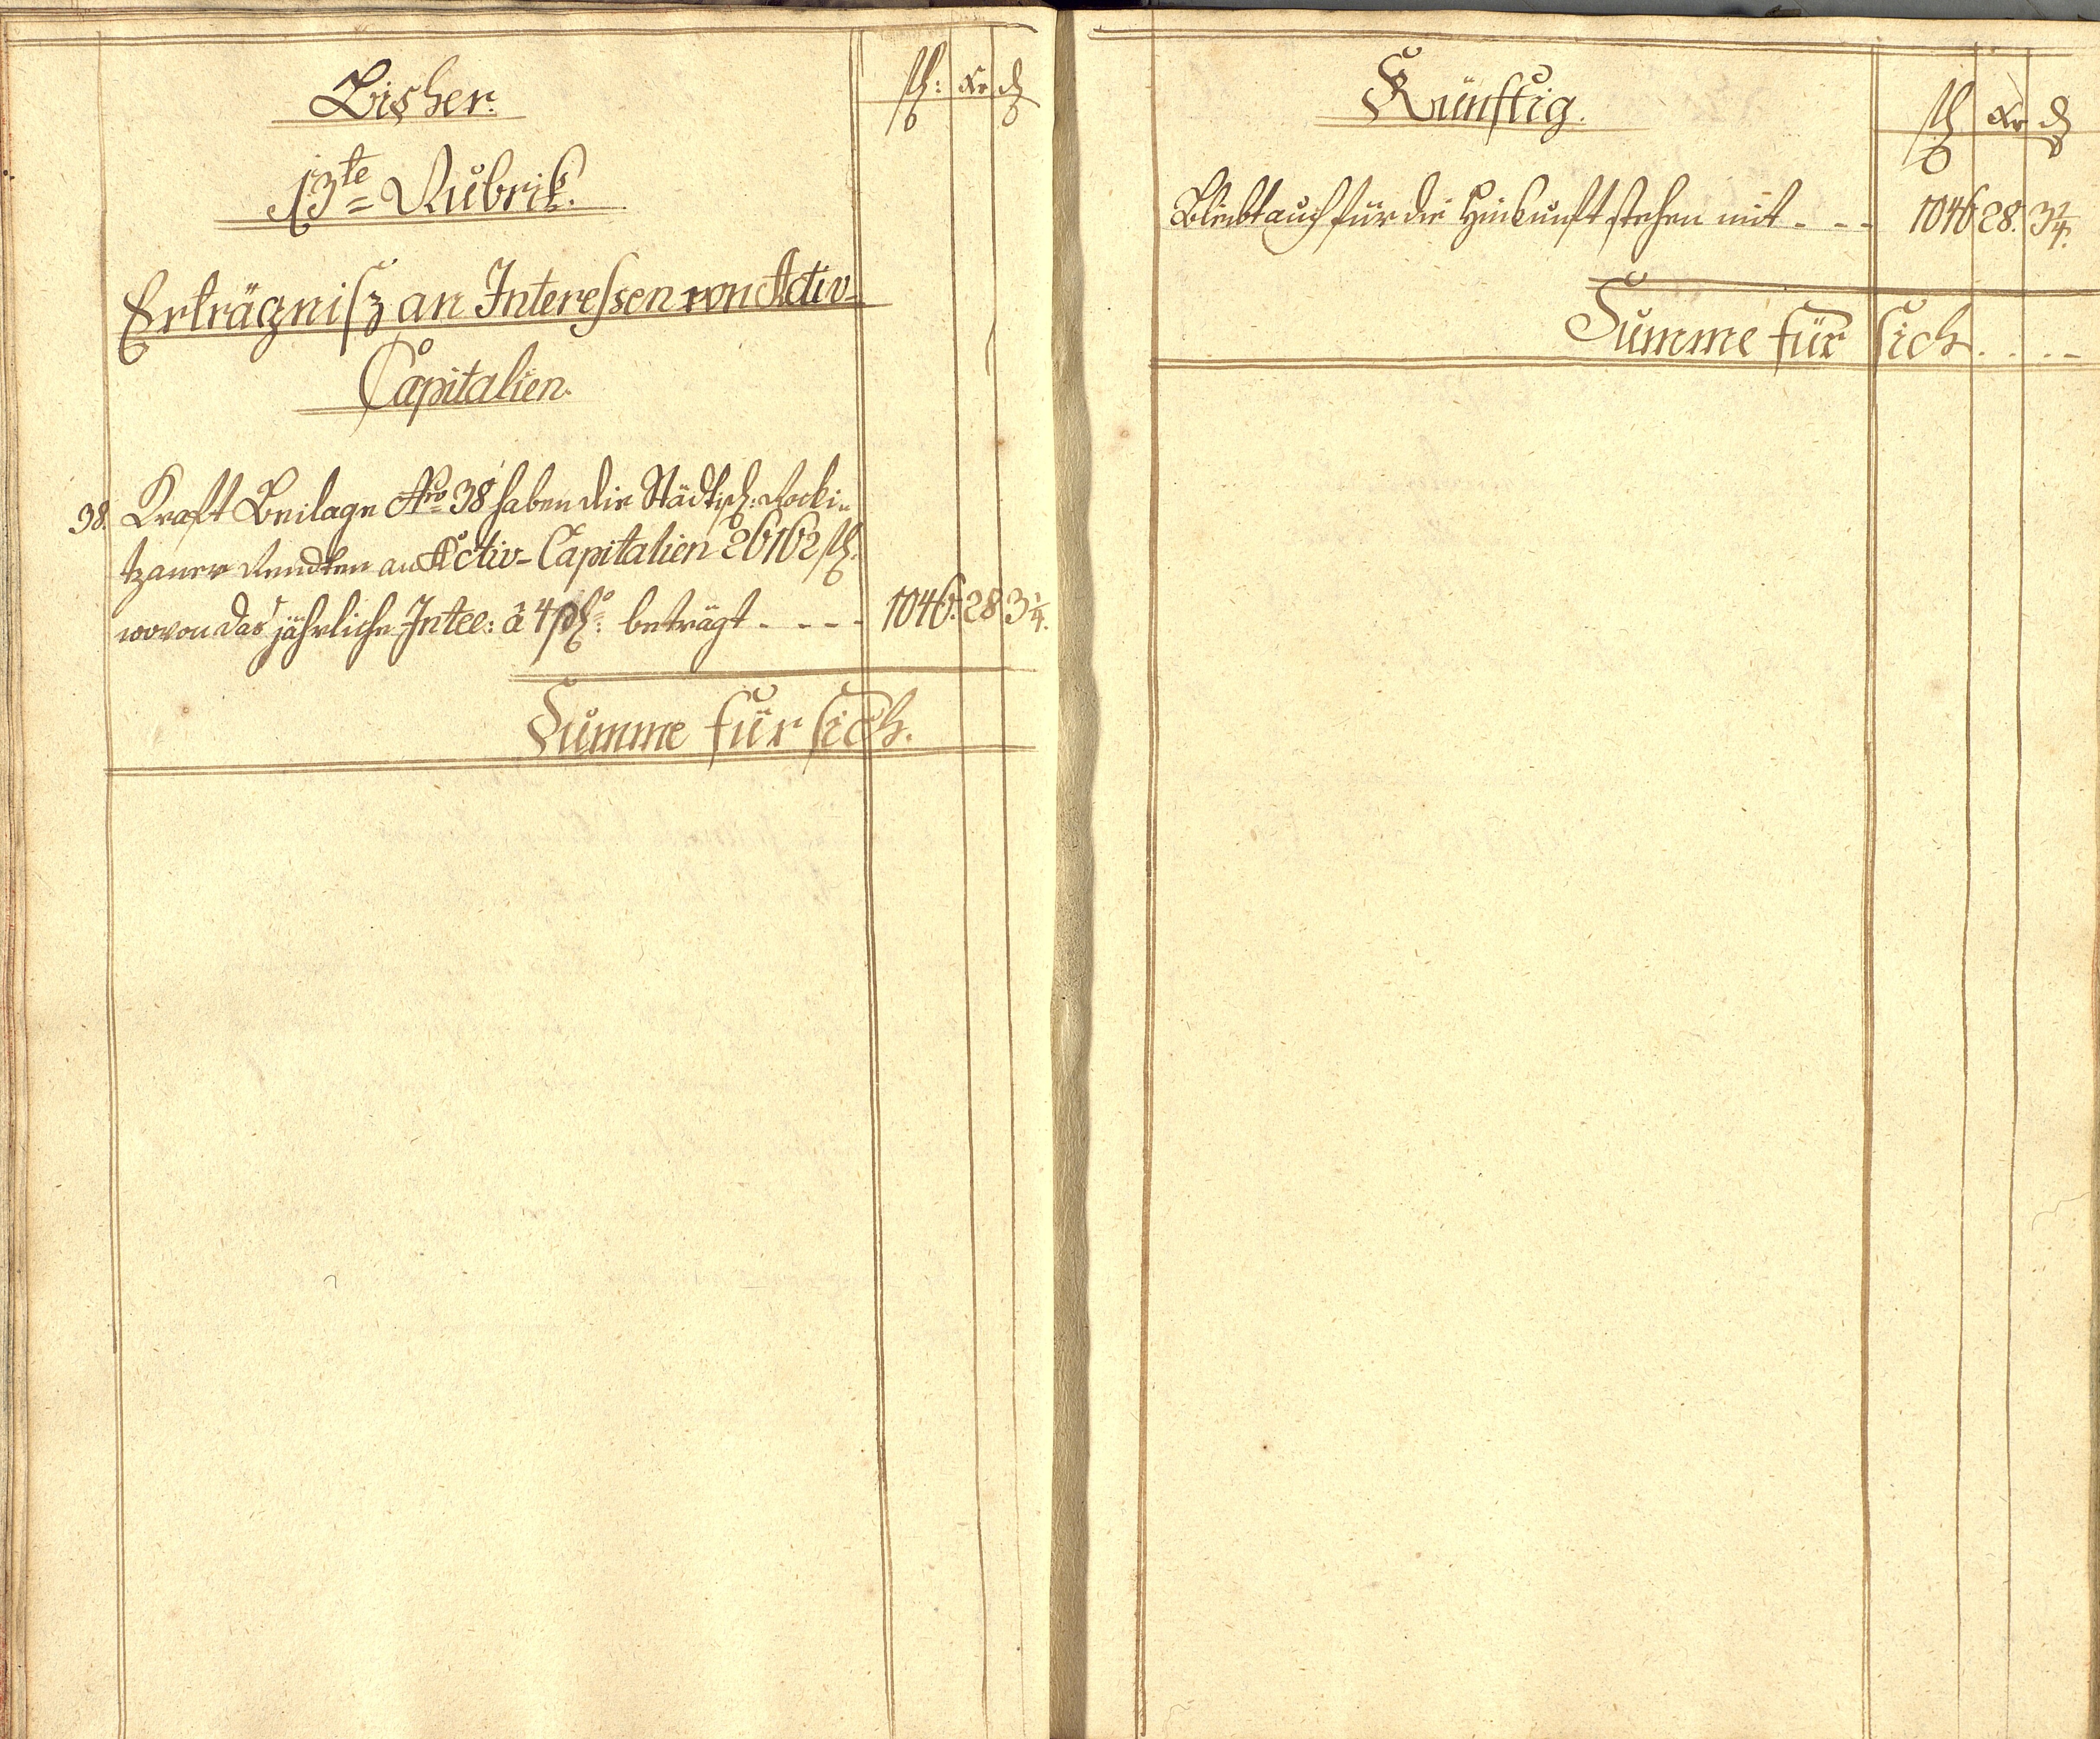 Bisher.
fl: Xr d
13te Rubrik.
Erträgniß an Interessen von Activ-
Capitalien.
38. Kraft Beilage Nro 38 haben die Städtisch: Rocki-
tzaner Rendten an Activ-Capitalien 26162 fl.
wovon das jährliche Intee: â 4 pCto: beträgt - - - - 1046. 28 3 1/4.
Summe für sich.
Künftig.
fl Xr d
Bleibt auch für die Hinkunft stehen mit - - - 1046 28. 3 1/4.
Summe für sich. . . . -